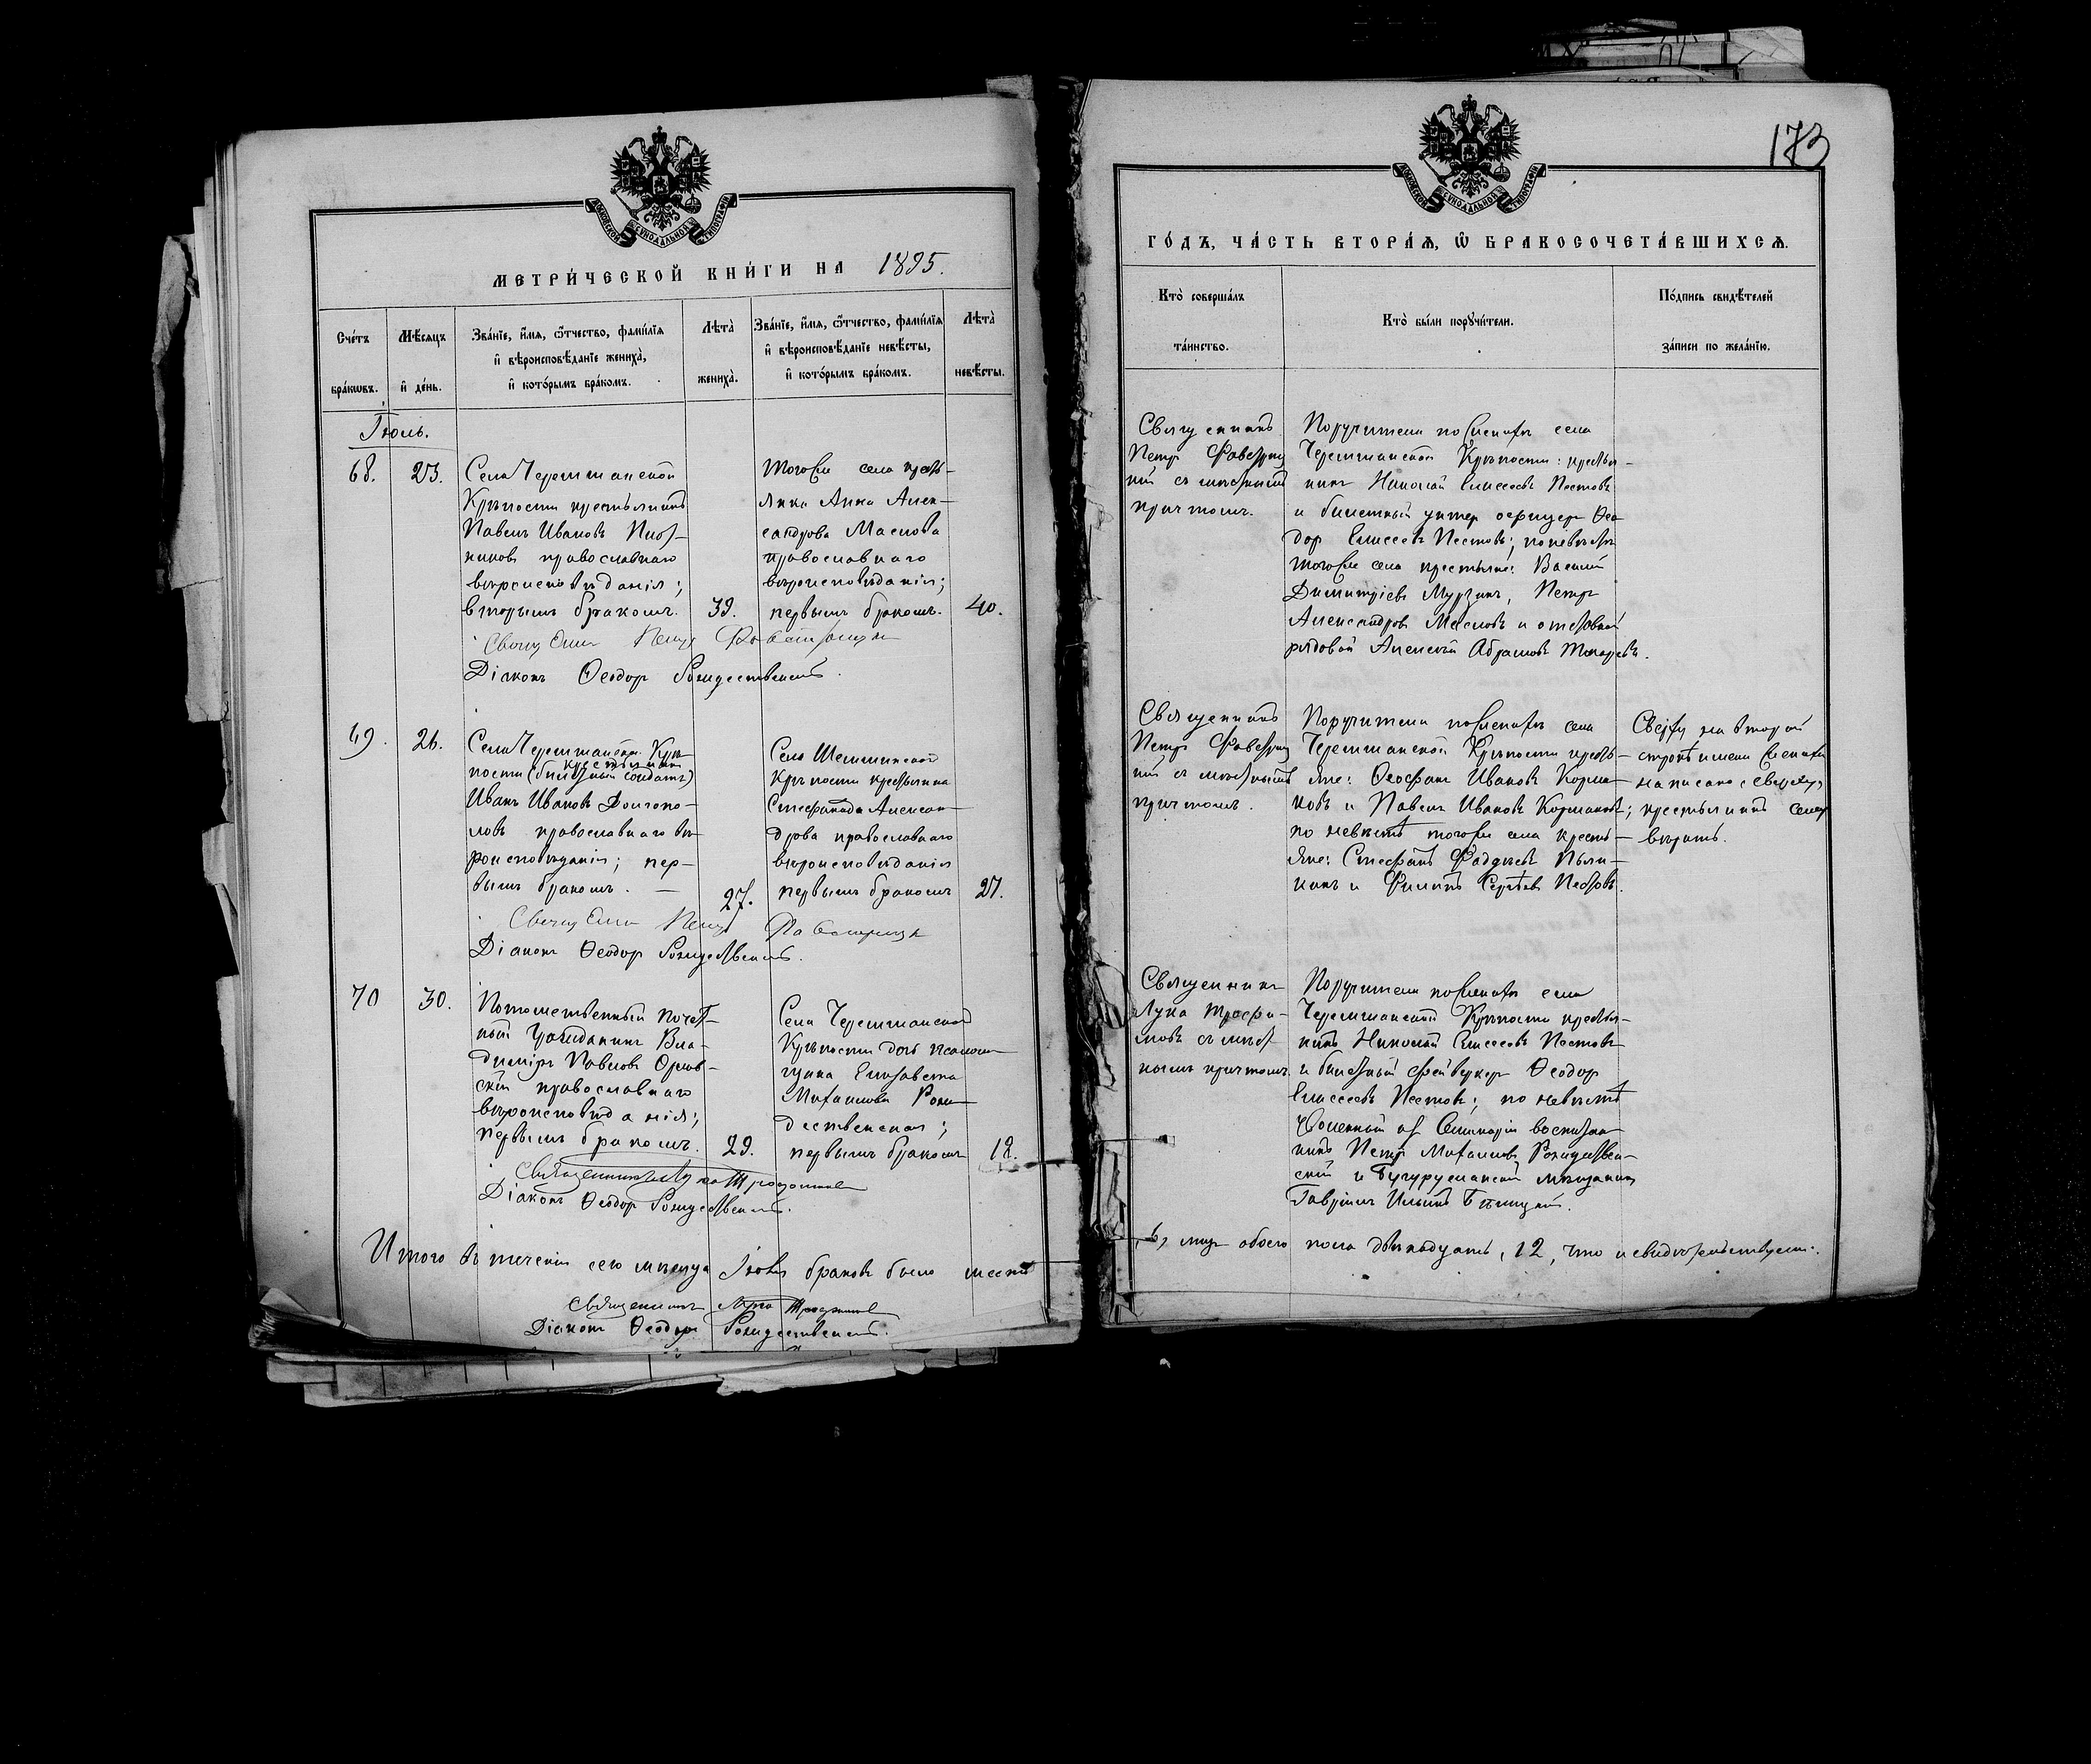 МОСКОВСКОЙ СѴНОДАЛЬНОЙ ТИПОГРАФІИ
МЕТРИ́ЧЕСКОЙ КНИ́ГИ НА 1895.
Сче́тъ бра́кѡвъ.
Мѣ́сяцъ и҆ де́нь.
Зва́нїе, и҆́мя, ѻ҆́тчество, фами́лїя
и҆ вѣроисповѣ́данїе жениха̀,
и҆ кото́рымъ бра́комъ.
Лѣта̀ жениха̀.
Зва́нїе, и҆́мя, ѻ҆́тчество, фами́лїя
и҆ вѣроисповѣ́данїе невѣ́сты,
и҆ кото́рымъ бра́комъ.
Лѣта̀ невѣ́сты.
Іюль.
68.
23.
Села Черемшанской
Крѣпости крестьянинъ
Павелъ Ивановъ Плот-
никовъ православнаго
вѣроисповѣданія;
вторымъ бракомъ.
39.
Тогоже села кресть-
янка Анна Алек-
сандрова Маслова
православнаго
вѣроисповѣданія;
первымъ бракомъ.
40.
Священ. Петръ Фавстрицкій
Діаконъ Ѳеодоръ Рождественскій.
69.
26.
Села Черемшанской Крѣ-
крестьянинъ
пости (билетный солдатъ)
Иванъ Ивановъ Долгопо-
ловъ православнаго вѣ-
роисповѣданія; пер-
вымъ бракомъ. —
27.
Села Шешминской
Крѣпости крестьянка
Стефанида Алексан-
дрова православнаго
вѣроисповѣданія
первымъ бракомъ
21.
Священ. Петръ Фавстрицкій
Діаконъ Ѳеодоръ Рождественскій.
70
30.
Потомственный почет-
ный гражданинъ Вла-
диміръ Павловъ Орлов-
скій православнаго
вѣроисповѣданія;
первымъ бракомъ.
29.
Села Черемшанской
Крѣпости дочь псалом-
щика Елизавета
Михаилова Рож-
дественская;
первымъ бракомъ
18.
Священникъ Лука Трофимовъ
Діаконъ Ѳеодоръ Рождественскій.
Итого въ теченіи сего мѣсяца Іюля браковъ было шесть
Священникъ Лука Трофимовъ
Діаконъ Ѳеодоръ Рождественскій.
173
МОСКОВСКОЙ СѴНОДАЛЬНОЙ ТИПОГРАФІИ
ГО́ДЪ, ЧА́СТЬ ВТОРА́Я, Ѡ҆ БРАКОСОЧЕТА́ВШИХСЯ.
Кто̀ соверша́лъ
та́инство.
Кто̀ бы́ли порꙋчи́тели.
По́дпись свидѣ́телей
за́писи по жела́нїю.
Священникъ
Петръ Фавстриц-
кій съ мѣстнымъ
причтомъ.
Поручители по женихѣ села
Черемшанской Крѣпости: крестья-
нинъ Николай Елисеевъ Пестовъ
и билетный унтеръ офицеръ Ѳео-
доръ Елисеевъ Пестовъ; по невѣстѣ
тогоже села крестьяне: Василій
Димитріевъ Мурзинъ, Петръ
Александровъ Масловъ и отставной
рядовой Алексѣй Абрамовъ Токаревъ.
Священникъ
Петръ Фавстриц-
кій съ мѣстнымъ
причтомъ.
Поручители по женихѣ села
Черемшанской Крѣпости кресть-
яне: Ѳеофанъ Ивановъ Корма-
ковъ и Павелъ Ивановъ Кормаковъ;
по невѣстѣ тогоже села кресть-
яне: Стефанъ Фаддѣевъ
и Филиппъ Сергѣевъ
Сверху на второй
строкѣ имени жениха
написано сверху
крестьянинъ сему
вѣрить.
Священникъ
Лука Трофи-
мовъ съ мѣст-
нымъ причтомъ.
Поручители по женихѣ села
Черемшанской Крѣпости крестья-
нинъ Николай Елисеевъ Пестовъ
и билетный фейверкеръ Ѳеодоръ
Елисеевъ Пестовъ; по невѣстѣ
Уволенный изъ Семинаріи воспитан-
никъ Петръ Михаиловъ Рождествен-
скій и Бугурусланскій мѣщанинъ
Гавріилъ Ильинъ
6, лицъ обоего пола двѣнадцать, 12, что и свидѣтельствуемъ.